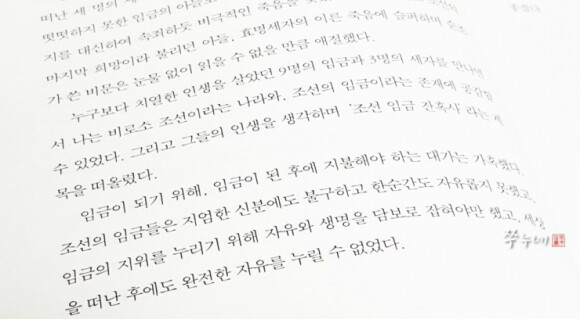 떠난 세 명의
떳떳하지 못한 임금의 아들로
지를 대신하여 속죄하듯 비극적인 죽음을
마지막 희망이라 불리던 아들, 효명세자의 이른 죽음에 슬퍼하며 순조
가 쓴 비문은 눈물 없이 읽을 수 없을 만큼 애절했다.
누구보다 치열한 인생을 살았던 9명의 임금과 3명의 세자를 만나면
서 나는 비로소 조선이라는 나라와, 조선의 임금이라는 존재에 공감할
수 있었다. 그리고 그들의 인생을 생각하며 '조선 임금 잔혹사'라는 제
목을 떠올렸다.
임금이 되기 위해, 임금이 된 후에 지불해야 하는 대가는 가혹했다.
조선의 임금들은 지엄한 신분에도 불구하고 한순간도 자유롭지 못했고,
임금의 지위를 누리기 위해 자유와 생명을 담보로 잡혀야만 했고, 세상
을 떠난 후에도 완전한 자유를 누릴 수 없었다.